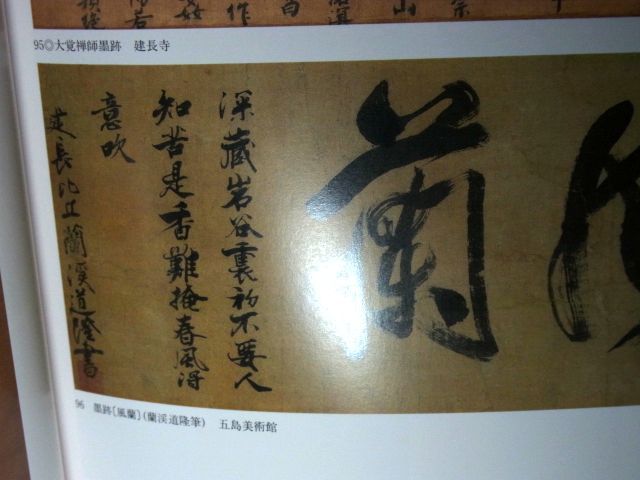 宗
山
作
95◎大覚禅師墨跡　建長寺
蘭
深藏岩谷裏初不要人
知苦是香難掩春風得
意吹
建長比丘蘭溪道隆書
96　墨跡[風蘭](蘭渓道隆筆)　五島美術館